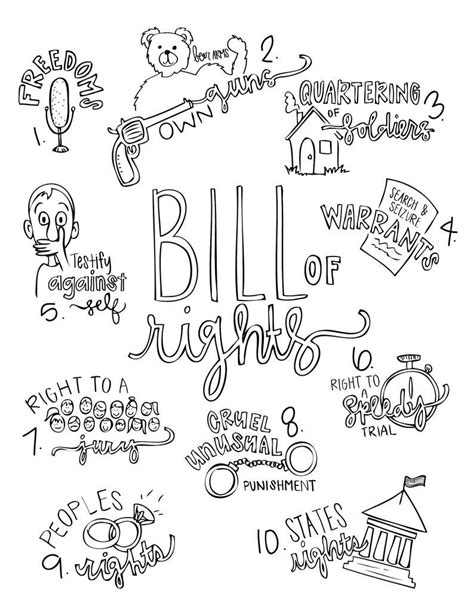 FREEDOMS
1.
bear ARMS
2.
OWN guns
QUARTERING
OF
soldiers
3.
SEARCH &
SEIZURE
WARRANTS
4.
Testify
against
self
5.
BILL OF
rights
6.
RIGHT TO
A
Speedy
TRIAL
RIGHT TO A
7.
jury
CRUEL
8.
unusual
PUNISHMENT
PEOPLES
9. rights
10. STATES
rights